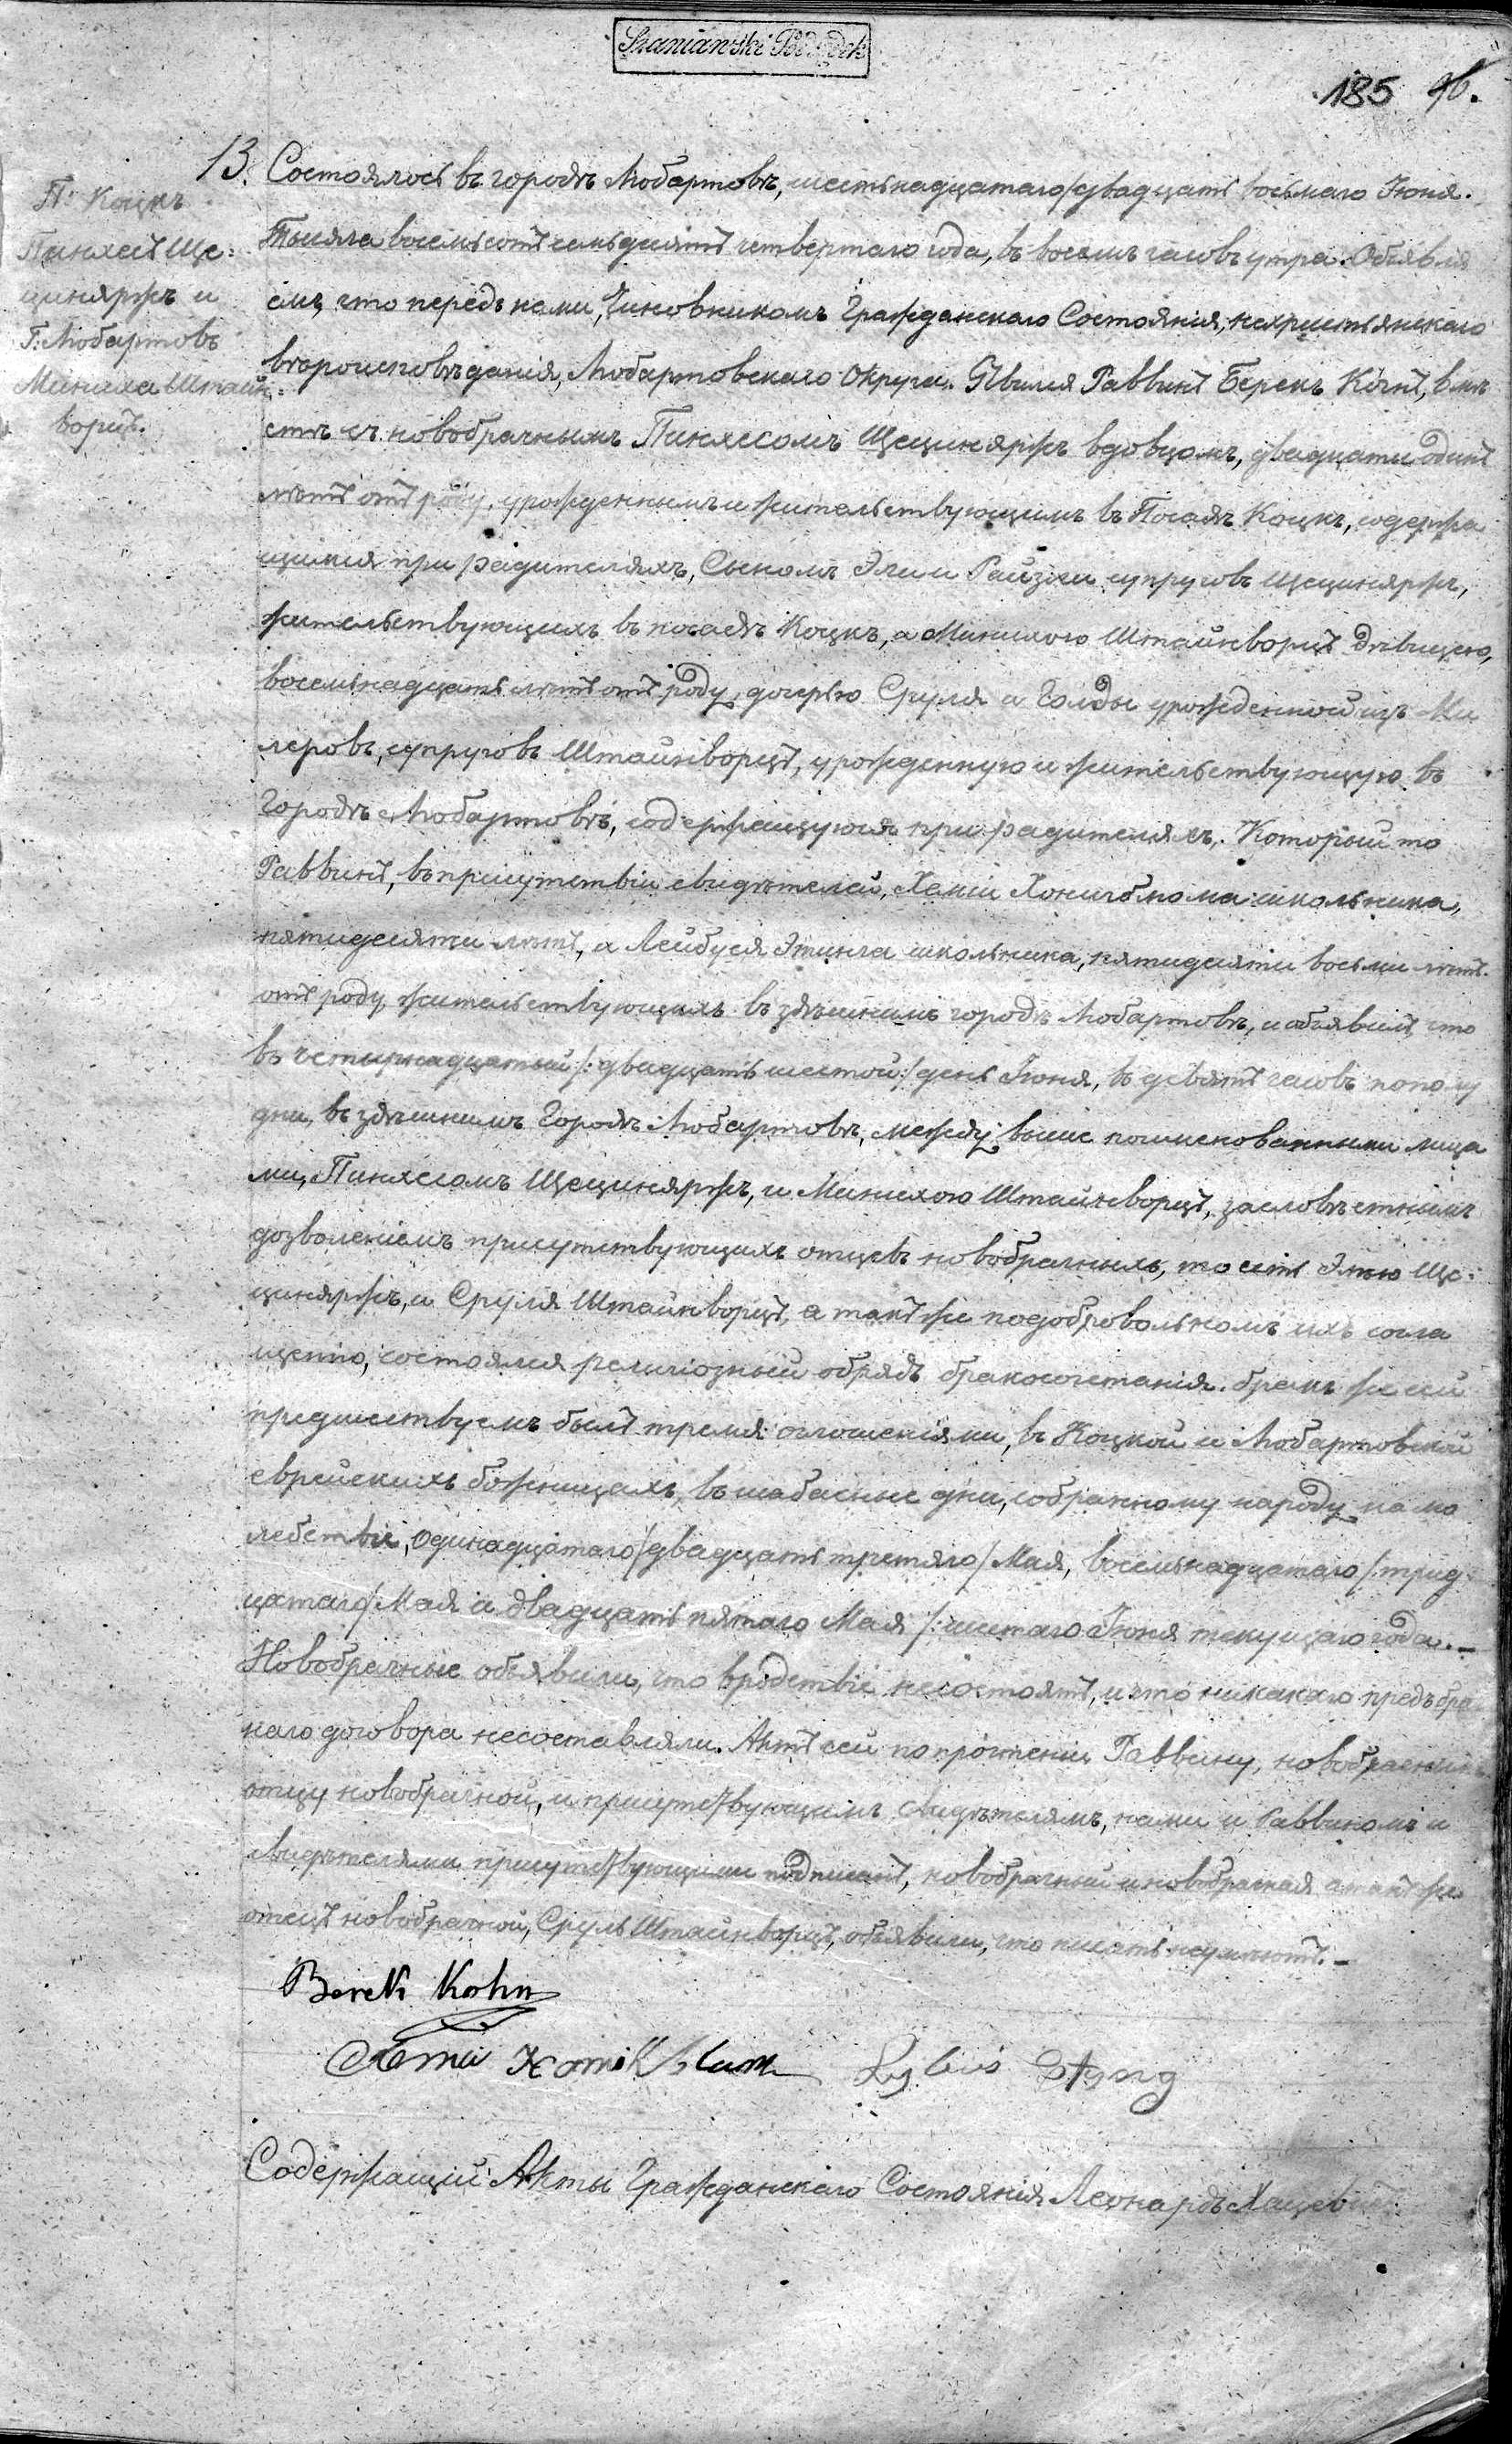 185 96.
13.
П. Коцкъ
Пинхесъ Ще:
циняржъ и
Г. Любартовъ
Миниха Штайн:
ворцъ.
Состоялось въ городѣ Любартовѣ, шестьнадцатаго/двадцать восьмаго Іюня.
Тысяча восемьсотъ семьдесятъ четвертаго года, въ восемь часовъ утра. Объявля
емъ, что передъ нами, Чиновникомъ Гражданскаго Состоянія, нехристьянскаго
вѣроисповѣданія, Любартовскаго Округа. Явился Раввинъ Берекъ Конъ, вмѣ
стѣ съ новобрачнымъ Пинхесомъ Щециняржъ вдовцомъ, двадцати одинъ
лѣтъ отъ роду, урожденнымъ и жительствующимъ въ Посадѣ Коцкъ, содержа
щимся при радителяхъ, Сыномъ Эли и Райзли супруговъ Щециняржъ,
жительствующихъ въ посадѣ Коцкъ, а Минихою Штайнворцъ дѣвицею,
восемьнадцать лѣтъ отъ роду, дочерью Сруля и Голды урожденной изъ Ми
леровъ, супруговъ Штайнворцъ, урожденную и жительствующую въ
Городѣ Любартовѣ, содержащуюся при радителяхъ. Который то
Раввинъ, въ присутствіи свидѣтелей, Хеміи Хоникблюма школьника,
пятидесяти лѣтъ, и Лейбуся Этинга школьника, пятидесяти восьми лѣтъ
отъ роду жительствующихъ въ здѣшнимъ городѣ Любартовѣ, и объявилъ, что
въ четырнадцатый /:двадцать шестой:/ день Іюня, въ девять часовъ пополу
дни, въ здѣшнимъ Городѣ Любартовѣ, между выше поименованными лица
ми, Пинхесомъ Щециняржъ, и Минихою Штайнворцъ, за словѣстнымъ
дозволеніемъ присутствующихъ отцевъ новобрачныхъ, то есть Элею Ще:
циняржъ, и Сруля Штайнворцъ, а такъ же по добровольномъ ихъ согла
щенію, состоялся религіозный обрядъ бракосочетанія. бракъ же сей
предшествуемъ былъ тремя оглошеніями, въ Коцкой и Любартовской
еврейскихъ божницахъ, въ шабасные дни, собранному народу на мо
лебствіе, одинадцатаго/двадцать третяго/ Мая, восемьнадцатаго /:трид
цатаго/ Мая и двадцать пятаго Мая /:шестаго Іюня текущаго года.—
Новобрачные объявили, что вродствіе несостоятъ, и что никакаго предъ бра
наго договора несоставляли. Актъ сей по прочтеніи Раввину, новобрачнымъ
отцу новобрачной, и присутствующимъ свидѣтелямъ, нами и Раввиномъ и
свидѣтелями присутствующими подписанъ, новобрачный и новобрачная а такъ же
отецъ новобрачной, Сруль Штайнворцъ, объявили, что писать неумѣютъ.—
Berek Kohn
Xemia Xonikblum Lybus Etyng
Содержащій Акты Гражданскаго Состоянія Леонардъ